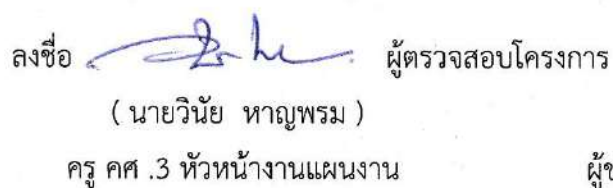 ลงชื่อ ผู้ตรวจสอบโครงการ
( นายวินัย หาญพรม )
ครู คศ .3 หัวหน้างานแผนงาน ผู้ช